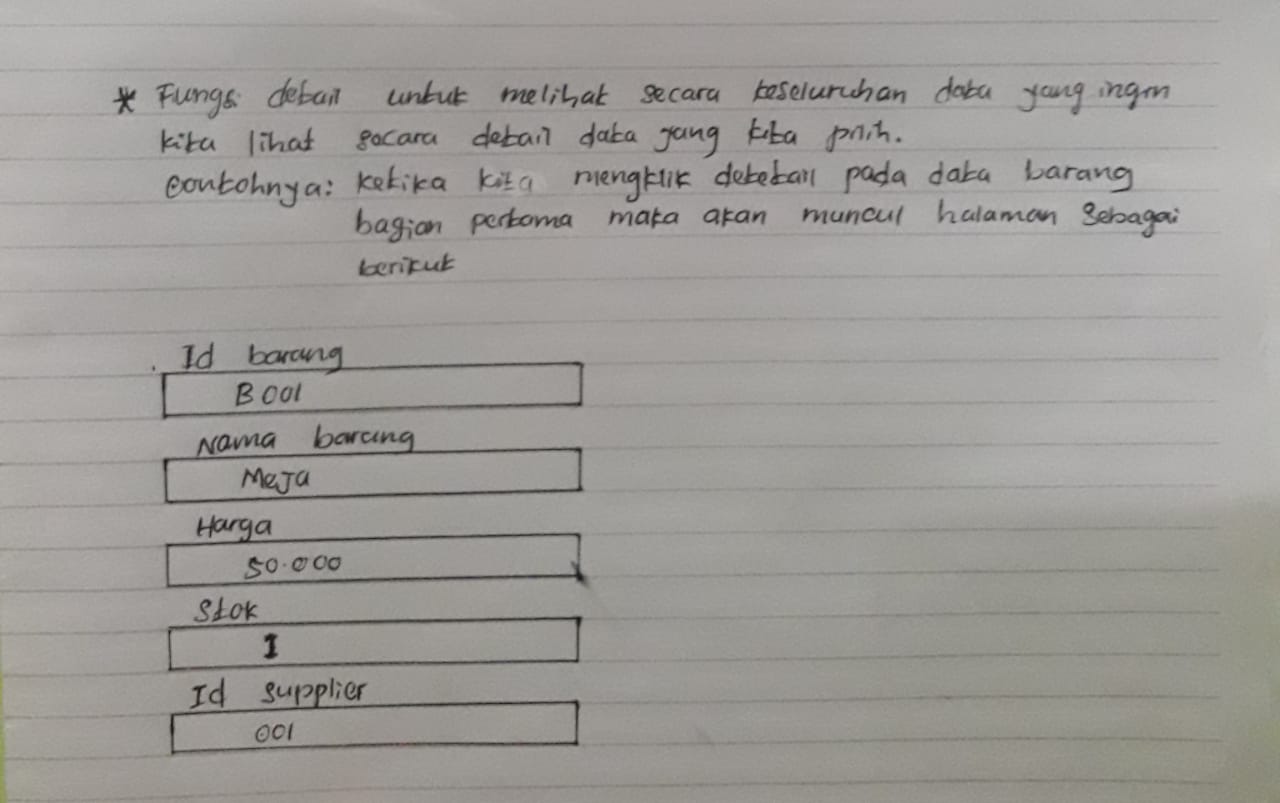 * Fungsi detail untuk melihat secara keseluruhan data yang ingin
kita lihat secara detail data yang kita pilih.
Contohnya: ketika kita mengklik detetail pada data barang
bagian pertama maka akan muncul halaman sebagai
berikut
Id barang
B001
Nama barang
Meja
Harga
50.000
Stok
1
Id supplier
001